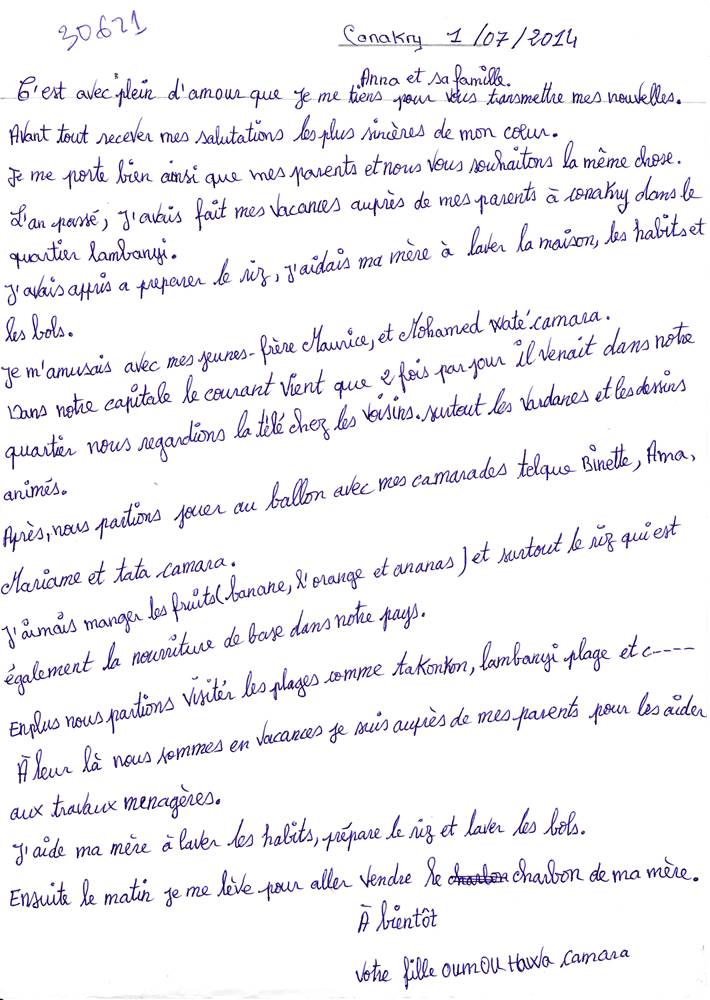 30621
Conakry 1/07/2014
Anna et sa famille.
C'est avec plein d'amour que je me tiens pour vous transmettre mes nouvelles.
Avant tout recever mes salutations les plus sincères de mon cœur.
Je me porte bien ainsi que mes parents et nous vous souhaitons la même chose.
L'an passé, j'avais fait mes vacances auprès de mes parents à conakry dans le
quartier lambanyi.
J'avais appris a preparer le riz, j'aidais ma mère à laver la maison, les habits et
les bols.
Je m'amusais avec mes jeunes-frère Maurice, et Mohamed waté camara.
Dans notre capitale le courant vient que 2 fois par jour il venait dans notre
quartier nous regardions la télé chez les voisins. surtout les Vardanes et les dessins
animés.
Après, nous partions jouer au ballon avec mes camarades telque Binette, Ama,
Mariame et tata camara.
J'aimais manger les fruits (banane, l'orange et ananas) et surtout le riz qui est
également la nourriture de base dans notre pays.
Enplus nous partions visiter les plages comme takonkon, lambanyi plage et c----
À leur là nous sommes en vacances je suis auprès de mes parents pour les aider
aux travaux menagères.
J'aide ma mère à laver les habits, prépare le riz et laver les bols.
Ensuite le matin je me lève pour aller vendre le charbon charbon de ma mère.
À bientôt
votre fille oumou Hawa camara